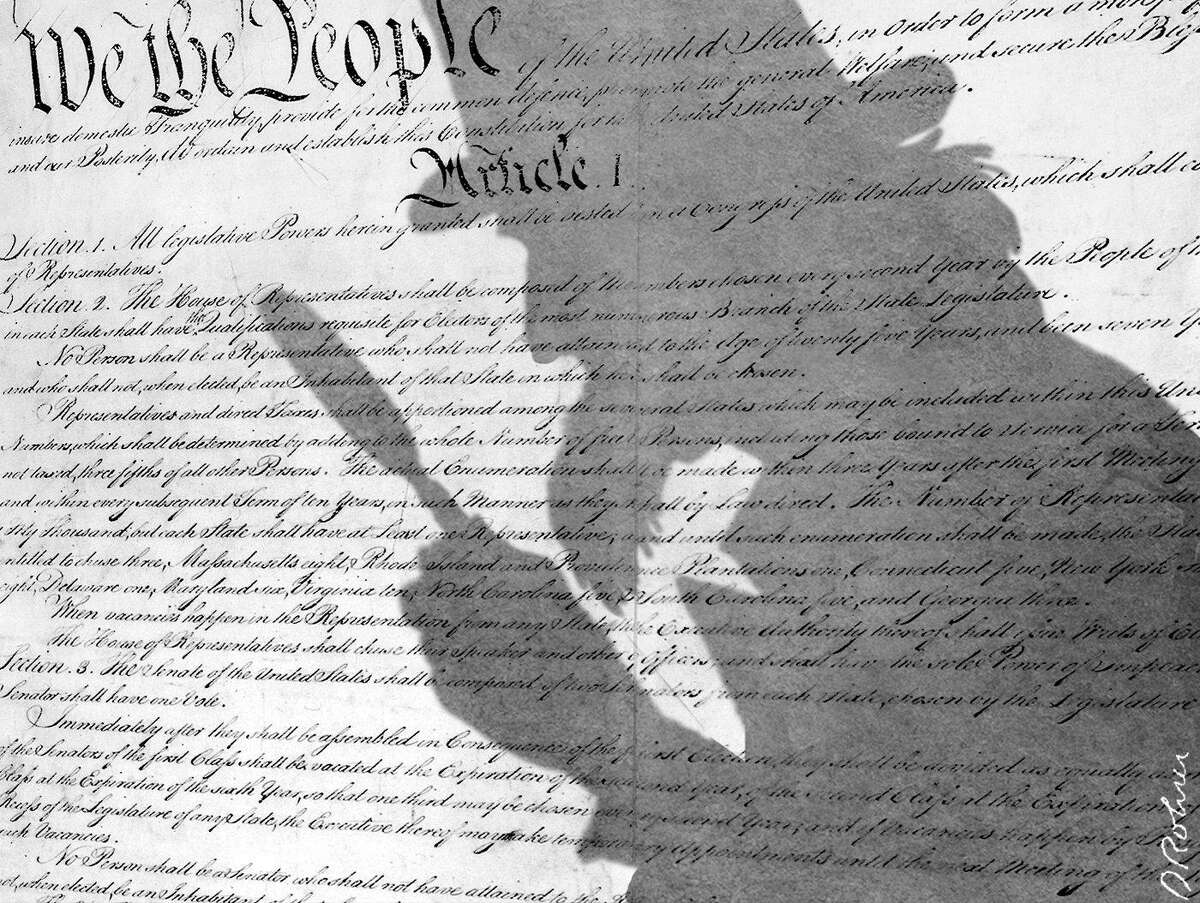 We the People of the United States, in Order to form a more
insure domestic Tranquility, provide for the common defence, promote the general Welfare, and secure the Bless
and our Posterity, do ordain and establish this Constitution for the United States of America.
Article. I.
Section. 1. All legislative Powers herein granted shall be vested in a Congress of the United States, which shall co
of Representatives.
Section. 2. The House of Representatives shall be composed of Members chosen every second Year by the People of
in each State shall have the Qualifications requisite for Electors of the most numerous Branch of the State Legislature.
No Person shall be a Representative who shall not have attained to the Age of twenty five Years, and been seven Y
and who shall not, when elected, be an Inhabitant of that State in which he shall be chosen.
Representatives and direct Taxes shall be apportioned among the several States which may be included within this Uni
Numbers, which shall be determined by adding to the whole Number of free Persons, including those bound to Service for a Ter
not taxed, three fifths of all other Persons. The actual Enumeration shall be made within three Years after the first Meeting
and within every subsequent Term of ten Years, in such Manner as they shall by Law direct. The Number of Representati
Thousand, but each State shall have at Least one Representative; and until such enumeration shall be made, the Sta
entitled to chuse three, Massachusetts eight, Rhode Island and Providence Plantations one, Connecticut five, New York
eight, Delaware one, Maryland six, Virginia ten, North Carolina five, South Carolina five, and Georgia three.
When vacancies happen in the Representation from any State, the Executive Authority thereof shall issue Writs of
the House of Representatives shall chuse their Speaker and other Officers; and shall have the sole Power of Impeac
Section. 3. The Senate of the United States shall be composed of two Senators from each State, chosen by the Legislature
Senator shall have one Vote.
Immediately after they shall be assembled in Consequence of the first Election, they shall be divided as equally as
of the Senators of the first Class shall be vacated at the Expiration of the second Year, of the second Class at the Expiration
Class at the Expiration of the sixth Year, so that one third may be chosen every second Year; and if Vacancies happen by
Recess of the Legislature of any State, the Executive thereof may make temporary Appointments until the next Meeting of
such Vacancies.
No Person shall be a Senator who shall not have attained to the
not, when elected, be an Inhabitant of that
D Rohrer